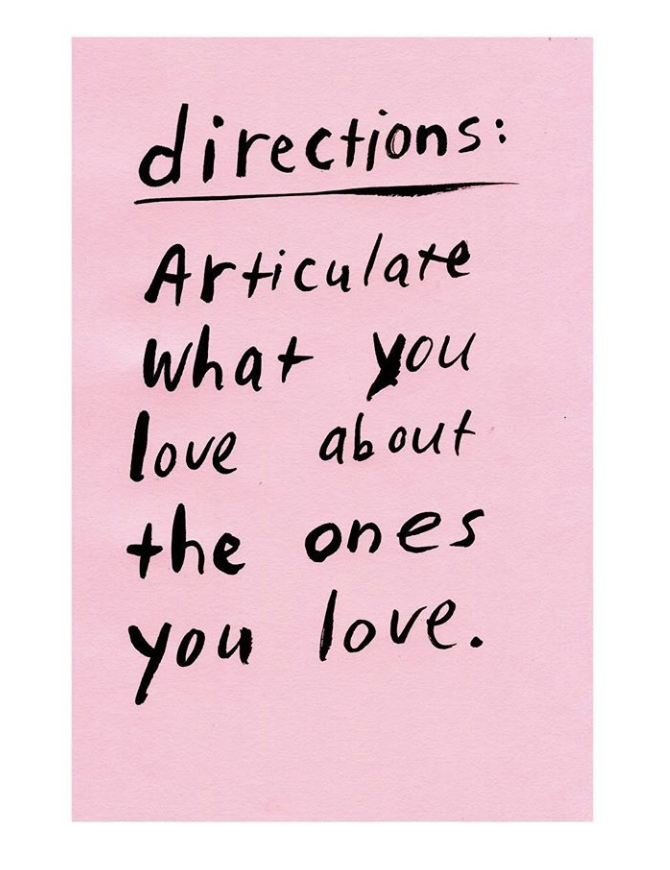 directions:
Articulate
what you
love about
the ones
you love.